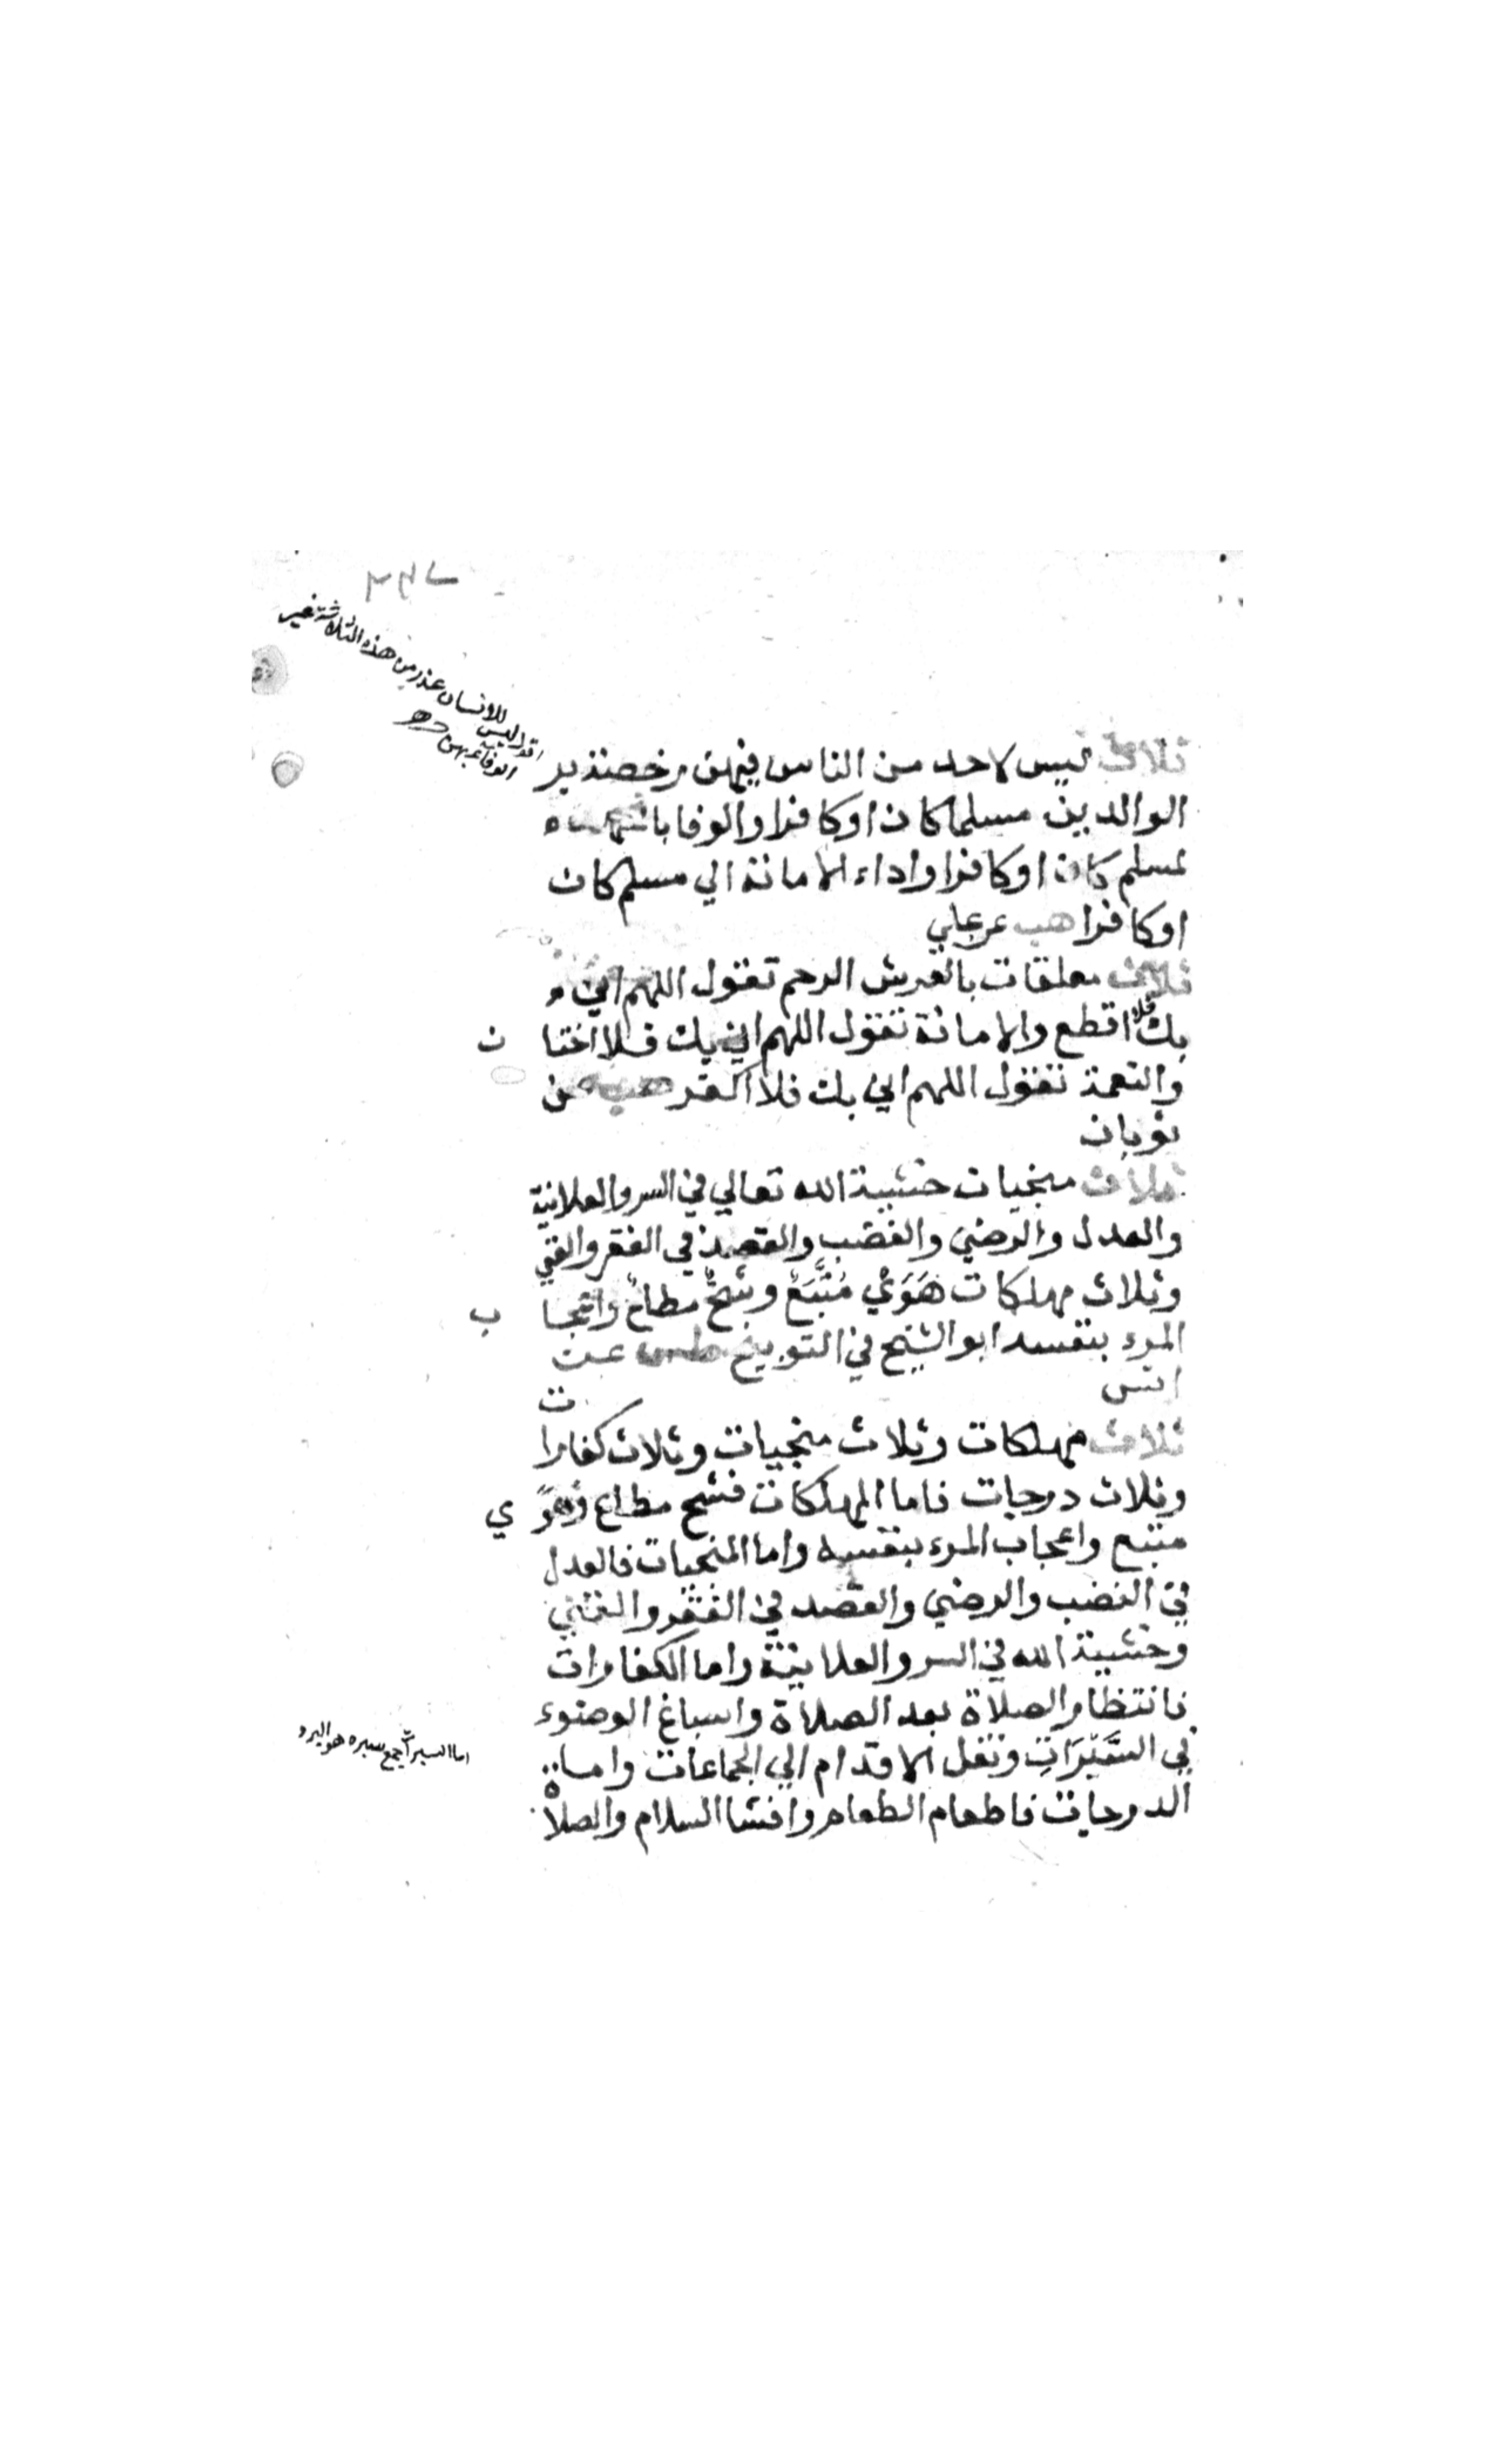 ٢٣٧
اقول ليس للانسان عذر من هذه الثلاثة غير
الوفاء بهن
ثلاث ليس لاحد من الناس فيهن رخصة بر
الوالدين مسلما كان او كافرا والوفا بالعهد
لمسلم كان او كافرا واداء الامانة الي مسلم كان
او كافرا هب عن علي
ثلاث معلقات بالعرش الرحم تقول اللهم اني
بك فلا اقطع والامانة تقول اللهم اني بك فلا اختان
والنعمة تقول اللهم اني بك فلا اكفر هب عن
ثوبان
ثلاث منجيات خشية الله تعالي في السر والعلانية
والعدل والرضي والغضب والقصد في الفقر والغني
وثلاث مهلكات هَوَيً مُتَّبَعٌ وشُحٌّ مطاعٌ واعجاب
المرء بنفسه ابو الشيخ في التوبيخ طس عن
انس
ثلاث مهلكات وثلاث منجيات وثلاث كفارات
وثلاث درجات فاما المهلكات فشح مطاع وهوًي
متبع واعجاب المرء بنفسه واما المنجيات فالعدل
في الغضب والرضي والقصد في الفقر والغني
وخشية الله في السر والعلانية واما الكفارات
فانتظار الصلاة بعد الصلاة واسباغ الوضوء
في السَّبَرَاتِ ونقل الاقدام الي الجماعات واما
الدرجات فاطعام الطعام وافشا السلام والصلاة
اما السبرات جمع سبره هو البرد